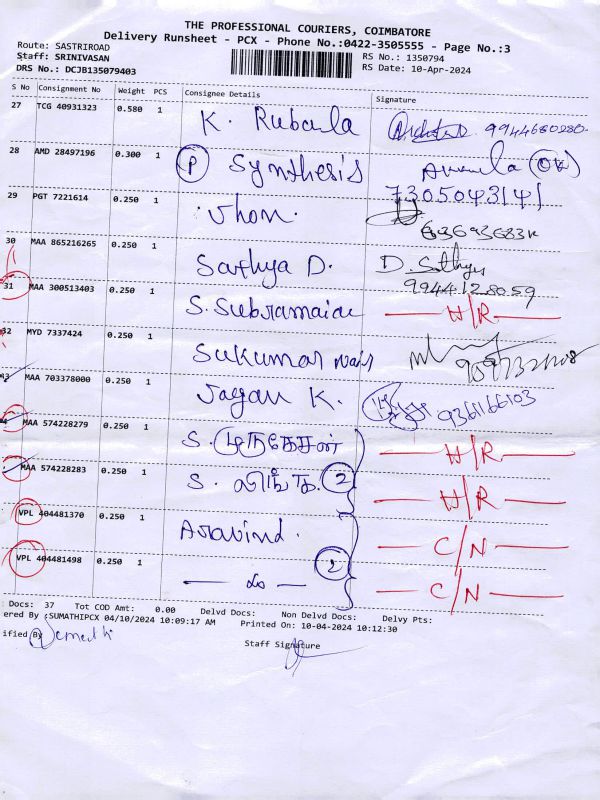 THE PROFESSIONAL COURIERS, COIMBATORE
Delivery Runsheet - PCX - Phone No.:0422-3505555 - Page No.:3
Route: SASTRIROAD
RS No.: 1350794
Staff: SRINIVASAN
RS Date: 10-Apr-2024
DRS No.: DCJB135079403
S No Consignment No Weight PCS Consignee Details Signature
27 TCG 40931323 0.580 1 K. Rubaula
28 AMD 28497196 0.300 1 P Synthesis
7305043141
29 PGT 7221614 0.250 1
30 MAA 865216265 0.250 1 Sathya D. D. Sathya
9944128059
31 MAA 300513403 0.250 1 H/R
32 MYD 7337424 0.250 1 Sukumar Nair
MAA 703378000 0.250 1 Jagan K. 9361166103
MAA 574228279 0.250 1 S. முருகேசன் H/R
MAA 574228283 0.250 1 S. லிங்க. 2 H/R
VPL 404481370 0.250 1 Aravind. C/N
VPL 404481498 0.250 1 2 C/N
Docs: 37 Tot COD Amt: 0.00 Delvd Docs: Non Delvd Docs: Delvy Pts:
ered By :SUMATHIPCX 04/10/2024 10:09:17 AM Printed On: 10-04-2024 10:12:30
ified By
Staff Signature